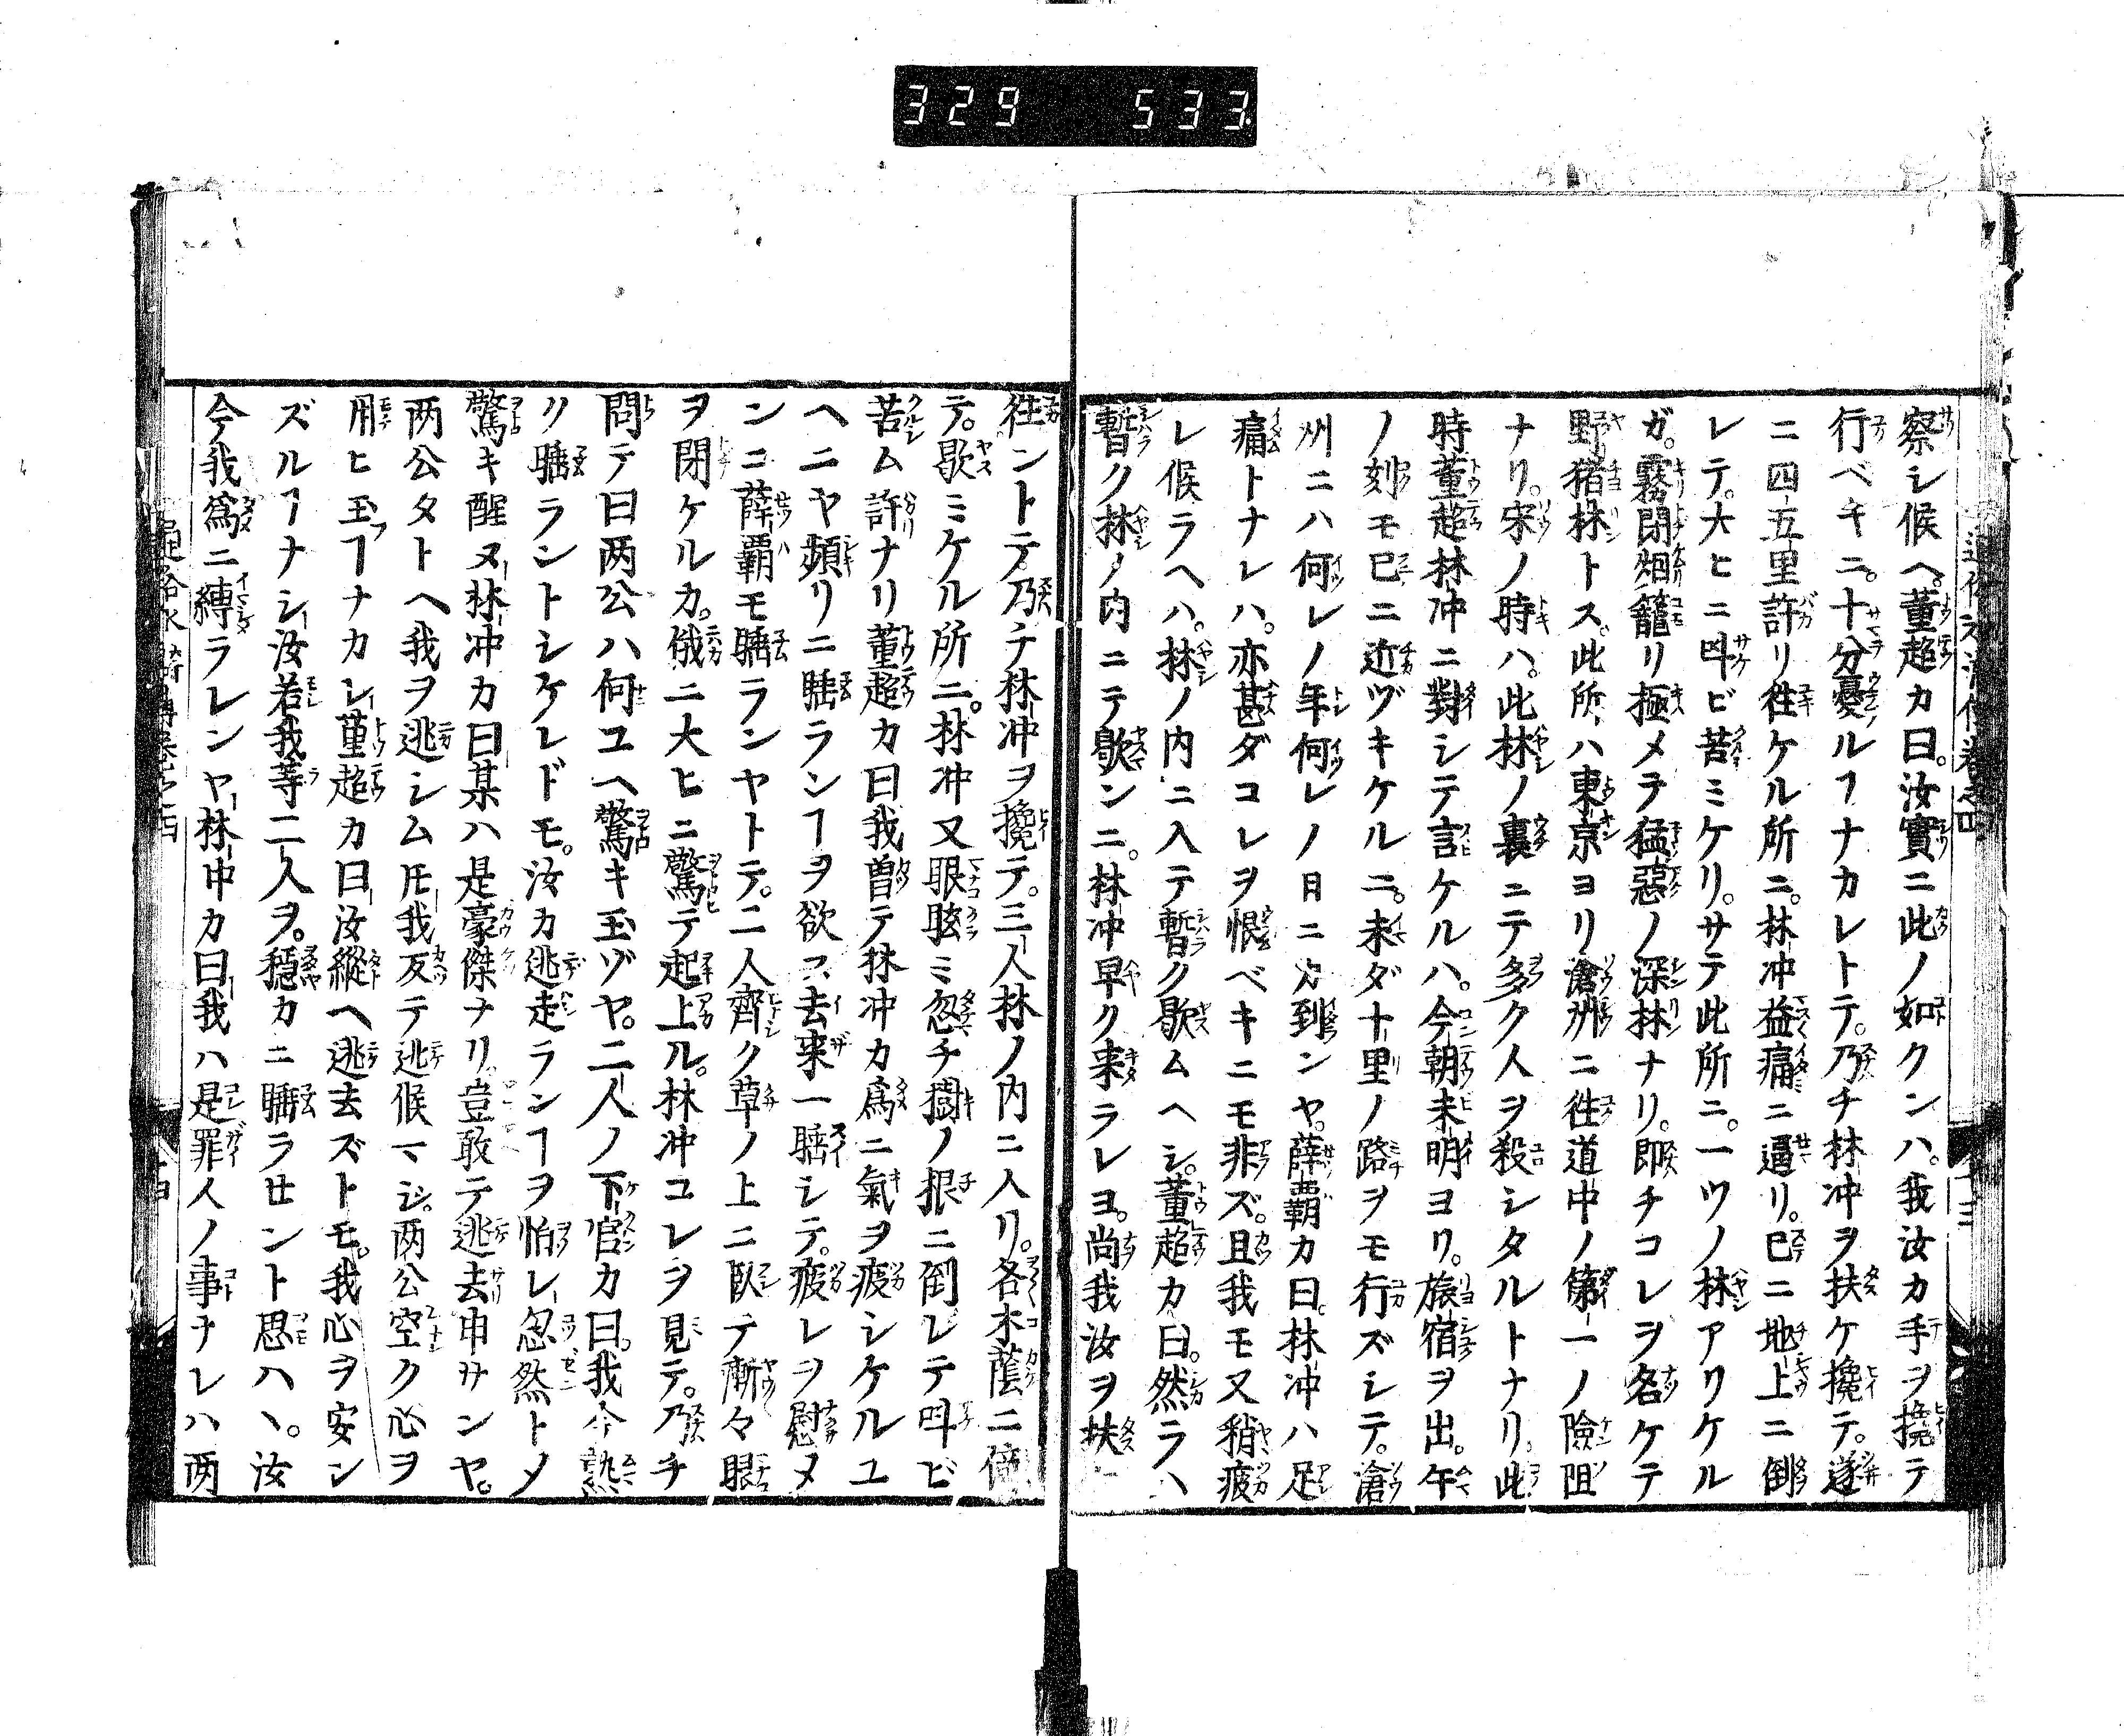 329 533
察シ候ヘ。董超カ曰。汝實ニ此ノ如クンハ。我汝カ手ヲ攙テ
行ベキニ。十分憂ルヿナカレトテ。乃チ林冲ヲ扶ケ攙テ。遂
ニ四五里許リ徃ケル所ニ。林冲益痛ニ逼リ。已ニ地上ニ倒
レテ。大ヒニ呌ビ苦ミケリ。サテ此所ニ。一ツノ林アリケル
ガ。霧閉烟籠リ極メテ猛惡ノ深林ナリ。即チコレヲ名ケテ
野猪林トス。此所ハ東京ヨリ滄洲ニ徃道中ノ第一ノ險阻
ナリ。宋ノ時ハ。此林ノ裏ニテ多ク人ヲ殺シタルトナリ。此
時董超林冲ニ對シテ言ケルハ。今朝未明ヨリ。旅宿ヲ出。午
ノ刻モ已ニ近ヅキケルニ。未ダ十里ノ路ヲモ行ズシテ。滄
州ニハ何レノ年何レノ日ニカ到ンヤ。薛覇カ曰。林冲ハ足
痛トナレハ。亦甚ダコレヲ恨ベキニモ非ズ。且我モ又稍疲
レ候ラヘハ。林ノ内ニ入テ暫ク歇ムヘシ。董超カ曰。然ラハ
暫ク林ノ内ニテ歇ンニ。林冲早ク来ラレヨ。尚我汝ヲ扶
徃ントテ。乃チ林冲ヲ攙テ。三人林ノ内ニ入リ。各木蔭ニ倚
テ。歇ミケル所ニ。林冲又眼眩ミ忽チ樹ノ根ニ倒レテ呌ビ
苦ム許ナリ董超カ曰我曽テ林冲カ爲ニ氣ヲ疲シケルユ
ヘニヤ頻リニ睡ランヿヲ欲ス、去来一睡シテ。疲レヲ慰メ
ンニ薛覇モ睡ランヤトテ。二人齊ク草ノ上ニ臥テ漸々眼
ヲ閉ケルカ。俄ニ大ヒニ驚テ起上ル。林冲コレヲ見テ。乃チ
問テ曰两公ハ何ユヘ驚キ玉ゾヤ。二人ノ下官カ曰。我今熟
ク睡ラントシケレドモ。汝カ逃走ランヿヲ怕レ忽然トメ
驚キ醒ヌ林冲カ曰某ハ是豪傑ナリ。豈敢テ逃去申サンヤ。
两公タトヘ我ヲ逃シムㇳモ我反テ逃候マジ。两公空ク心ヲ
用ヒ玉フヿナカレ董超カ曰汝縱ヘ逃去ズトモ。我心ヲ安ン
ズルヿナシ汝若我等二人ヲ。穩カニ睡ラセント思ハヽ。汝
今我爲ニ縛ラレンヤ林冲カ曰我ハ是罪人ノ事ナレハ两